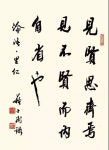 見賢思齊焉
見不賢而內
自省也
論語·里仁